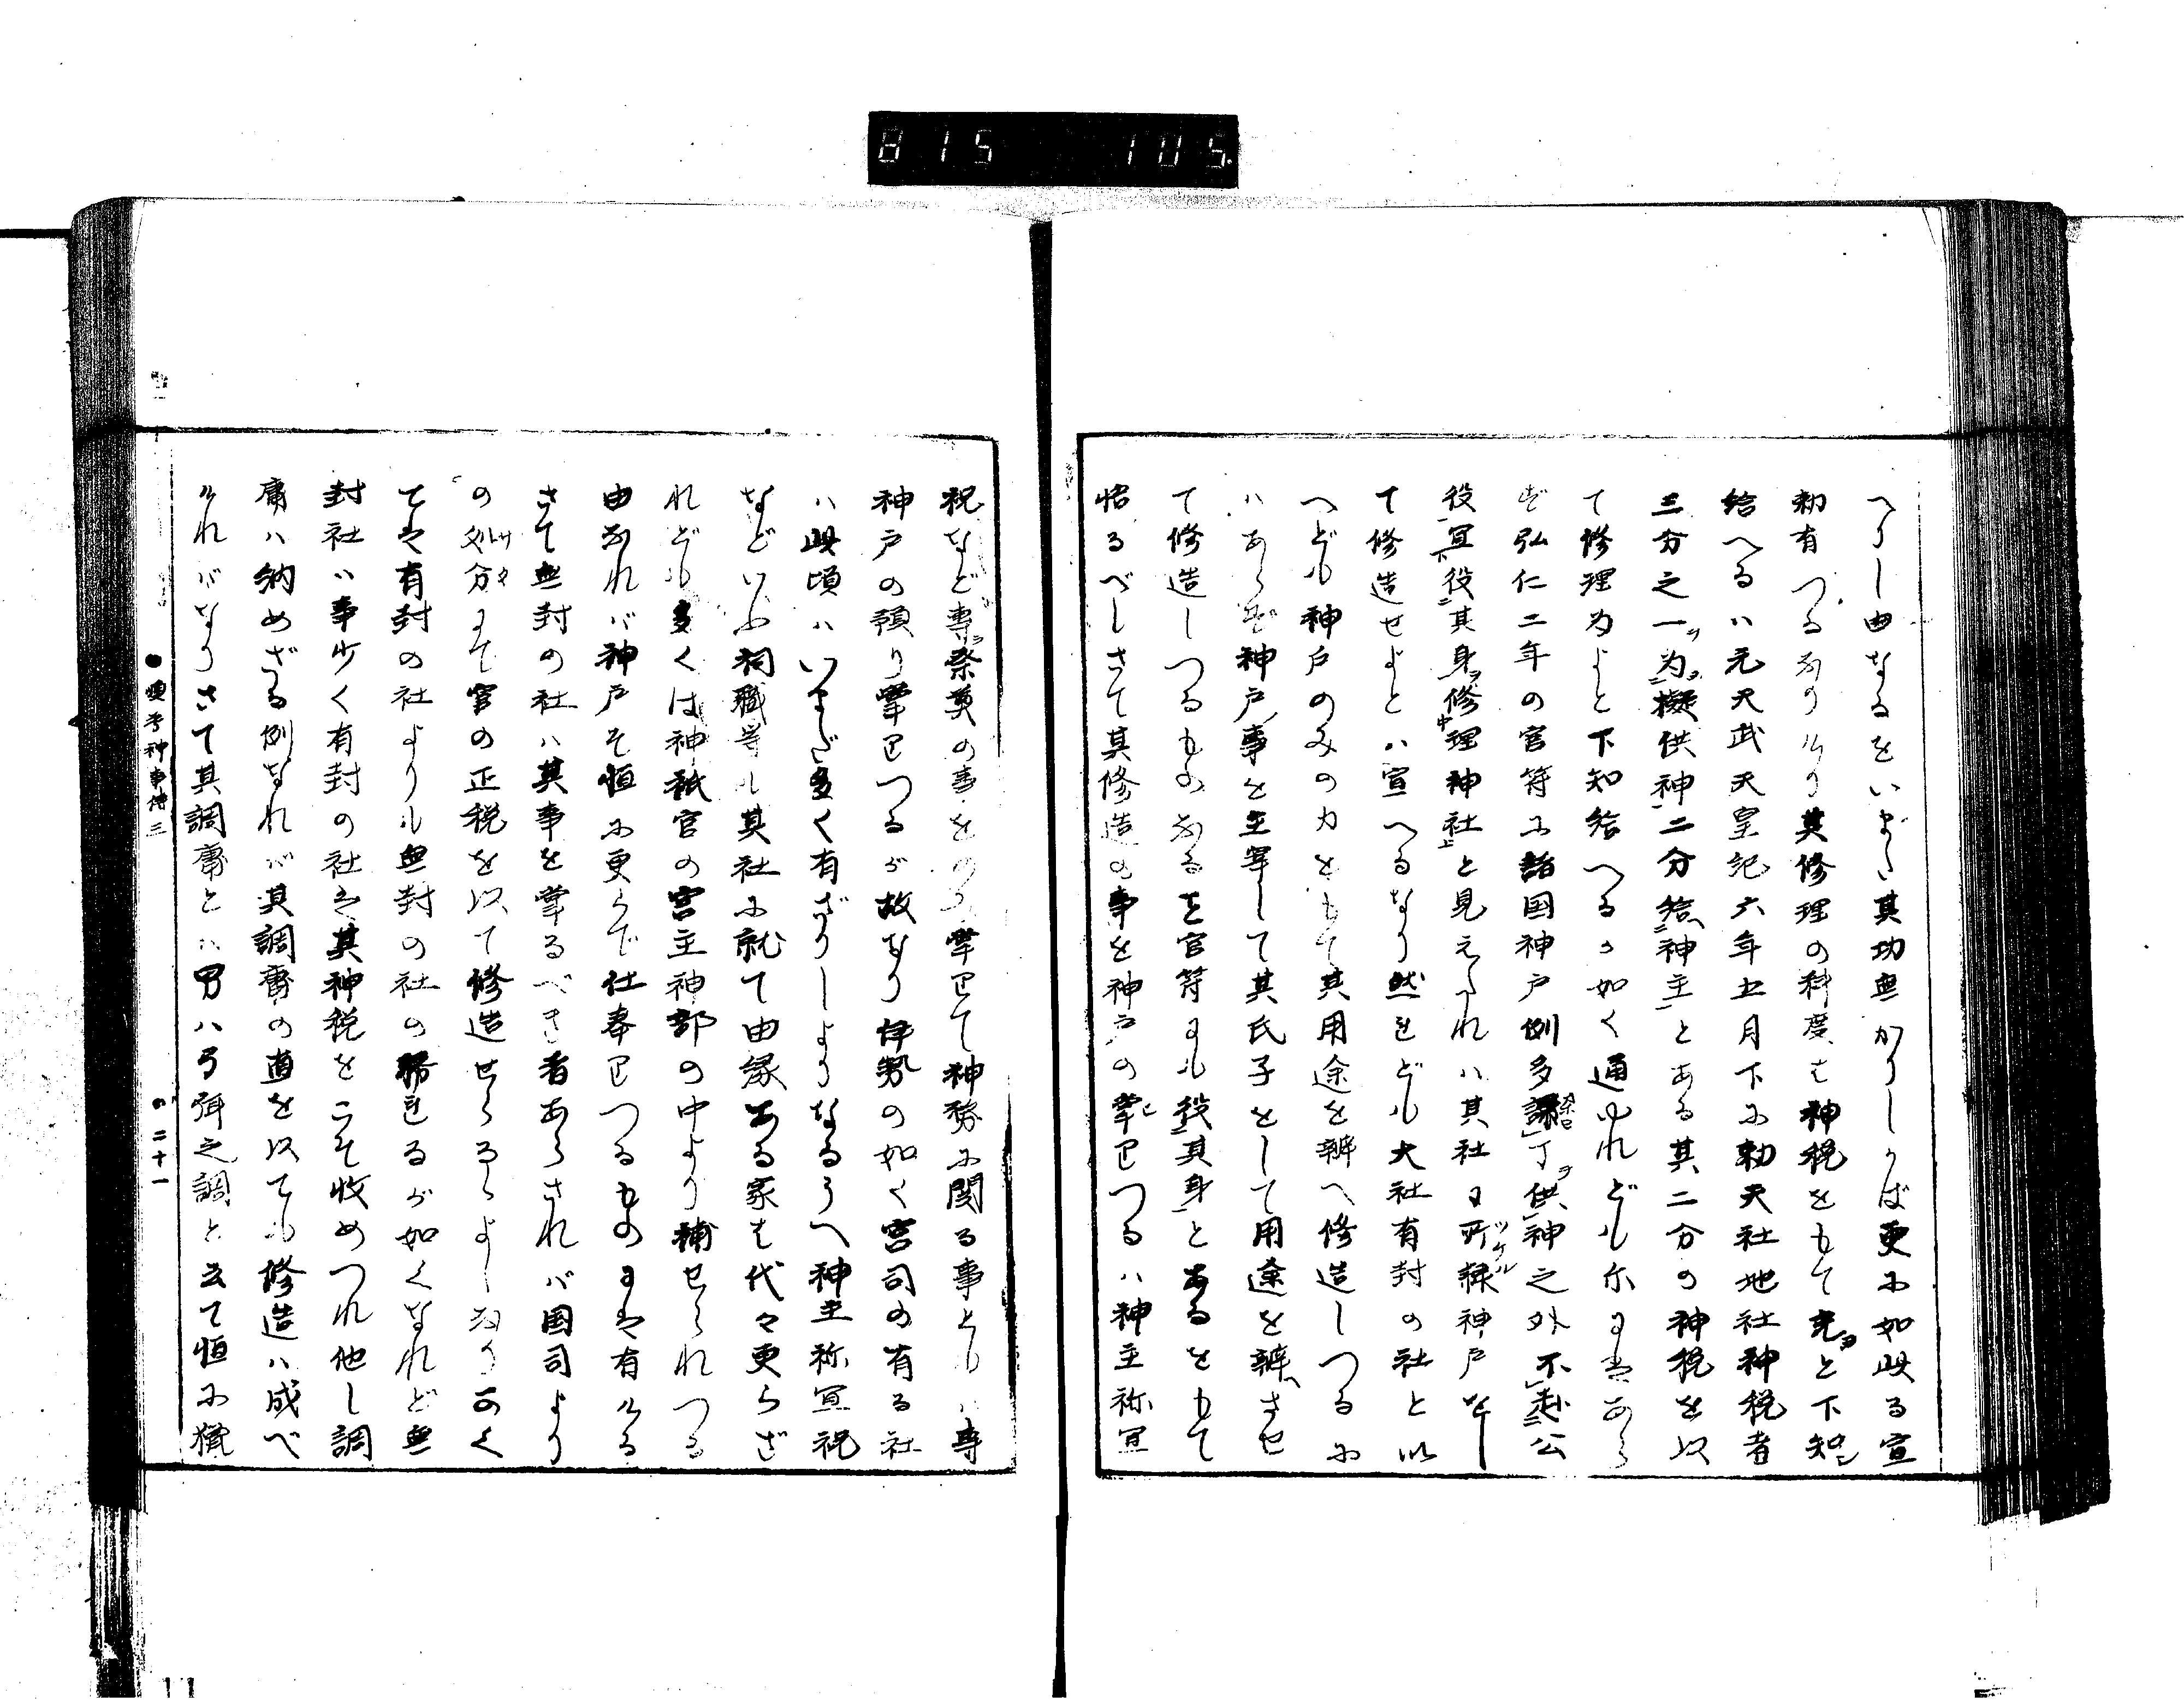 815 105
へりし由なるをいまだ其功無かりしかば更に如此る宣
勅有つるなりけり其修理の料度は神税をもて充ヨと下知シ
給へるハ元天武天皇紀六年五月下に勅天社地社神税者
三分之一ヲ為擬供神二分給神主とある其二分の神税を以
て修理為よと下知給へるか如く通ゆれども尓にはあら
ず弘仁二年の官符に諸国神戸例多課丁供神之外不赴公
役宜役其身修理神社と見えたれハ其社に所隷ツケル神戸等し
て修造せよとハ宣へるなり然れども大社有封の社と以
へども神戸のみの力をもて其用途を辨へ修造しつるに
ハあらず神戸事を主宰して其氏子をして用途を辨へさせ
て修造しつるものなるを官符にも役其身とあるをもて
悟るべしさて其修造の事を神戸の掌ヒ巳つるハ神主祢宜
祝など専祭奠の事をのみ掌巳て神務に関る事ともハ専
神戸の預り掌巳つるが故なり伊勢の如く宮司の有る社
ハ此頃ハいまだ多く有ざりしよりなるうへ神主祢宜祝
などいふ祠職等も其社に就て由縁ある家は代々更らざ
れども多くは神祇官の宮主神部の中より補せられつる
由なれバ神戸そ恒に更らで仕奉巳つるものには有ける
さて無封の社ハ其事を掌るべき者あらされバ国司より
の処分にて官の正税を以て修造せらるゝよしなりかく
ては有封の社よりも無封の社の勝れるが如くなれど無
封社ハ事少く有封の社は其神税をこそ收めつれ他し調
庸ハ納めざる例なれバ其調庸の直を以ても修造ハ成べ
けれバなりさて其調庸とハ男ハ弓弭之調と云て恒に獵
●神事傳三
二十一